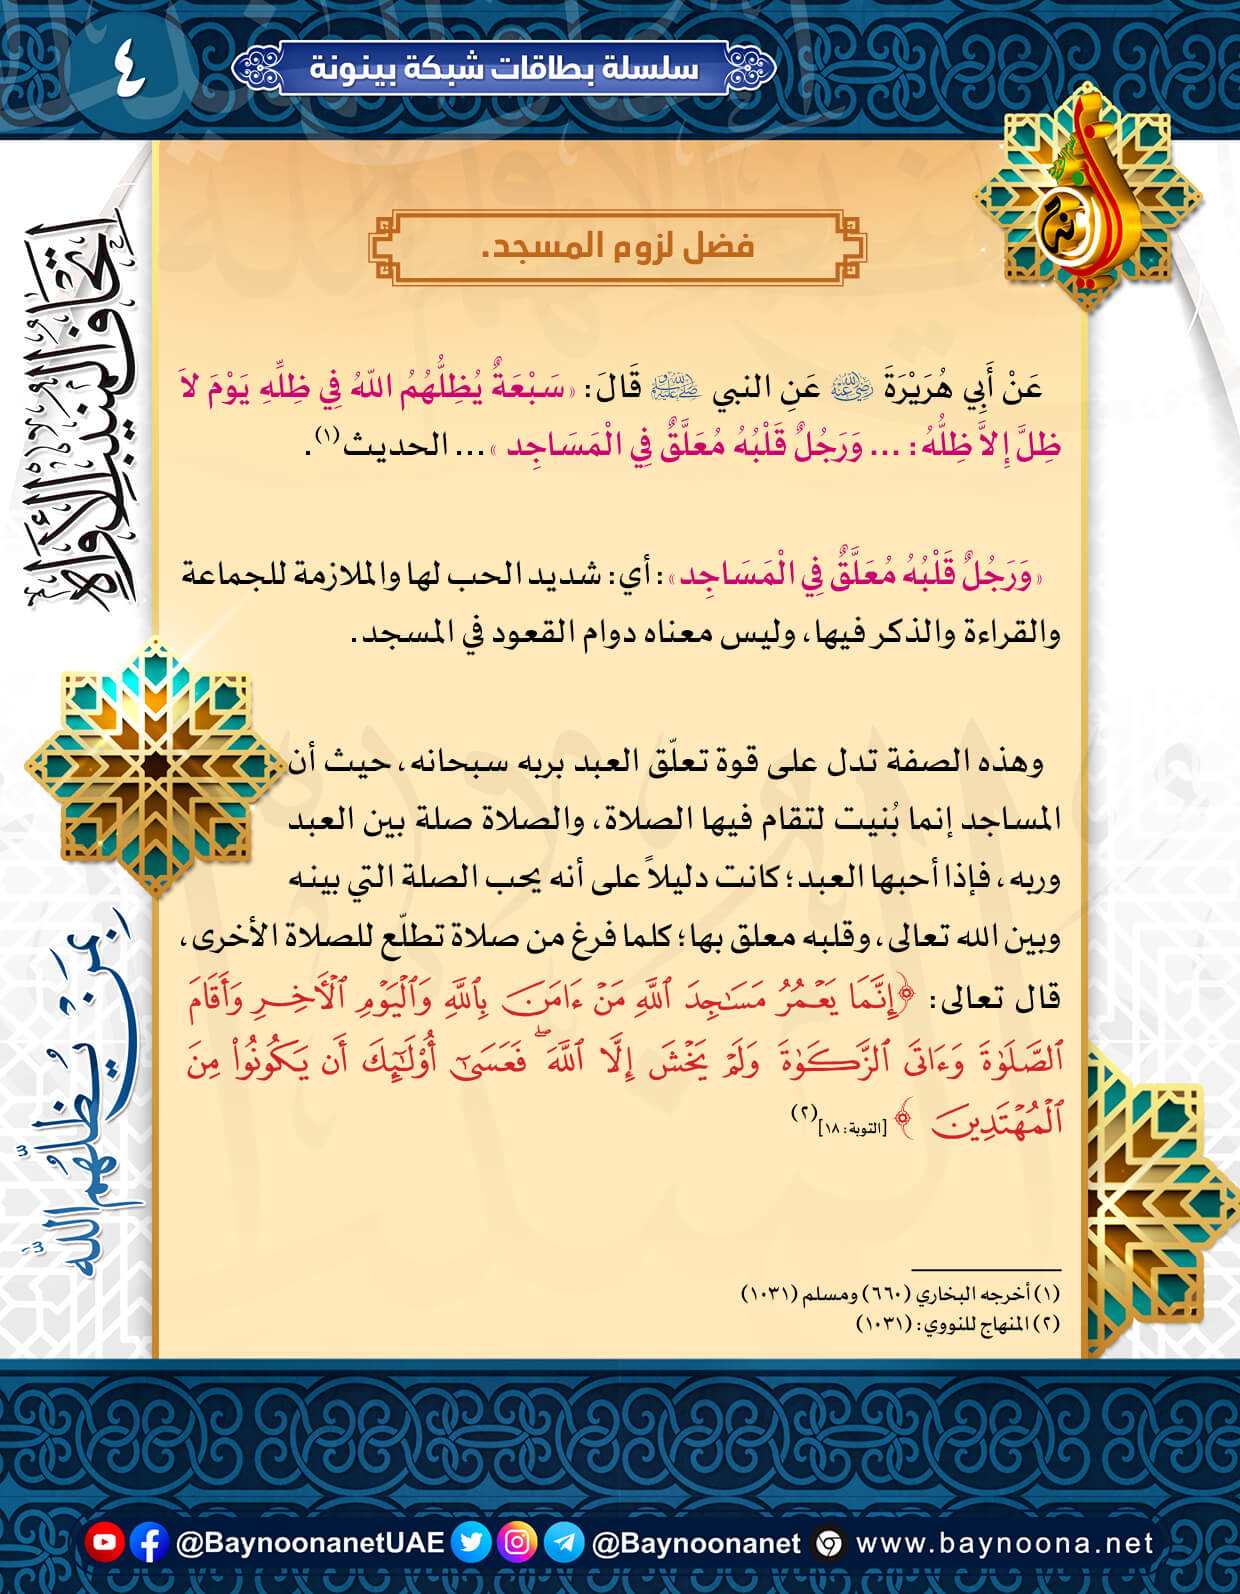 سلسلة بطاقات شبكة بينونة
٤
إتحاف النبيل الأواه
بمن يُظلهم الله
فضل لزوم المسجد.
عَنْ أَبِي هُرَيْرَةَ رضي الله عنه عَنِ النبي صلى الله عليه وسلم قَالَ: «سَبْعَةٌ يُظِلُّهُمُ اللهُ فِي ظِلِّهِ يَوْمَ لاَ
ظِلَّ إِلاَّ ظِلُّهُ: ... وَرَجُلٌ قَلْبُهُ مُعَلَّقٌ فِي الْمَسَاجِد» ... الحديث(١).
«وَرَجُلٌ قَلْبُهُ مُعَلَّقٌ فِي الْمَسَاجِد»: أي: شديد الحب لها والملازمة للجماعة
والقراءة والذكر فيها، وليس معناه دوام القعود في المسجد.
وهذه الصفة تدل على قوة تعلّق العبد بربه سبحانه، حيث أن
المساجد إنما بُنيت لتقام فيها الصلاة، والصلاة صلة بين العبد
وربه، فإذا أحبها العبد؛ كانت دليلاً على أنه يحب الصلة التي بينه
وبين الله تعالى، وقلبه معلق بها؛ كلما فرغ من صلاة تطلّع للصلاة الأخرى،
قال تعالى: ﴿إِنَّمَا يَعۡمُرُ مَسَٰجِدَ ٱللَّهِ مَنۡ ءَامَنَ بِٱللَّهِ وَٱلۡيَوۡمِ ٱلۡأٓخِرِ وَأَقَامَ
ٱلصَّلَوٰةَ وَءَاتَى ٱلزَّكَوٰةَ وَلَمۡ يَخۡشَ إِلَّا ٱللَّهَۖ فَعَسَىٰٓ أُوْلَٰٓئِكَ أَن يَكُونُواْ مِنَ
ٱلۡمُهۡتَدِينَ﴾ [التوبة: ١٨](٢)
(١) أخرجه البخاري (٦٦٠) ومسلم (١٠٣١)
(٢) المنهاج للنووي: (١٠٣١)
@BaynoonanetUAE @Baynoonanet www.baynoona.net